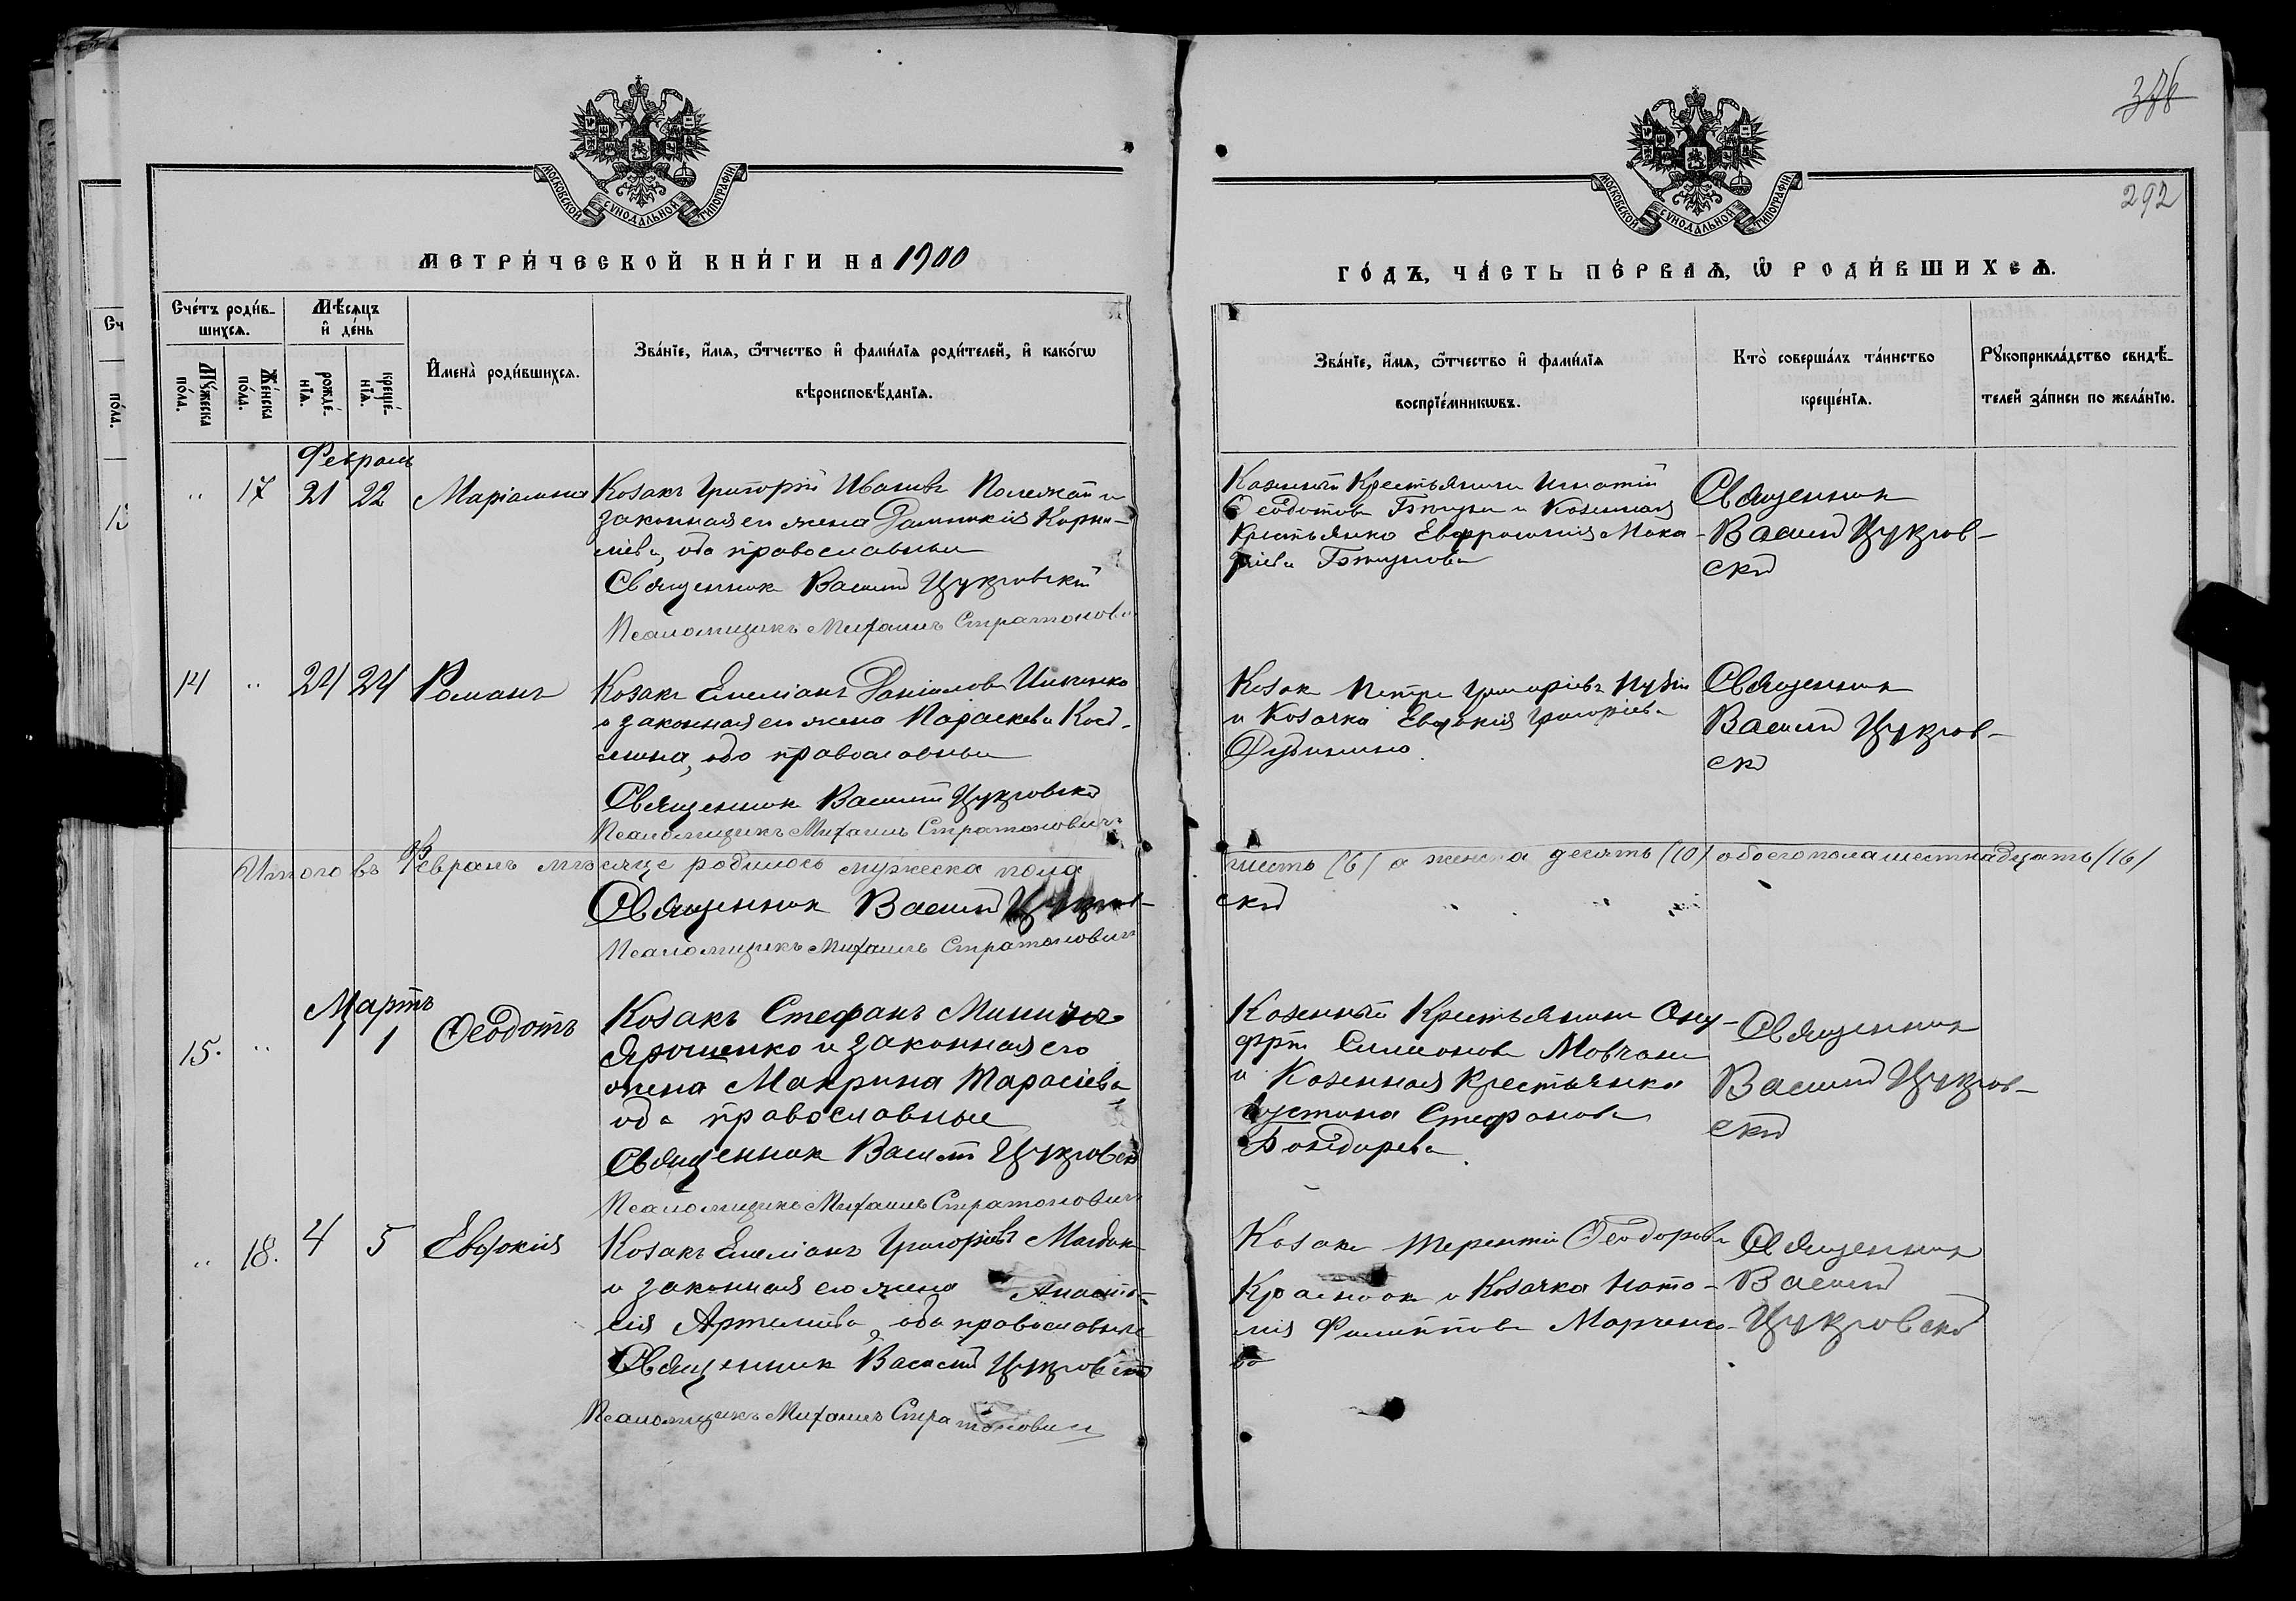 376
292
МОСКОВСКОЙ СУНОДАЛЬНОЙ ТИПОГРАФІИ
МОСКОВСКОЙ СУНОДАЛЬНОЙ ТИПОГРАФІИ
МЕТРИ́ЧЕСКОЙ КНИ́ГИ НА 1900
ГО́ДЪ, ЧА́СТЬ ПЕ́РВАѦ, Ѡ РОДИ́ВШИХСѦ.
Сче́тъ роди́в-
шихсѧ.
Мѣ́сѧцъ
и҆ де́нь
Мꙋ́жеска
по́ла.
Же́нска
по́ла.
рожде́-
нїѧ.
креще́-
нїѧ.
И҆мена̀ роди́вшихсѧ.
Зва́нїе, и҆́мѧ, ѻ҆́тчество и҆ фами́лїѧ роди́телей, и҆ како́гѡ
вѣроисповѣ́данїѧ.
Зва́нїе, и҆́мѧ, ѻ҆́тчество и҆ фами́лїѧ
воспрїе́мникѡвъ.
Кто̀ соверша́лъ та́инство
креще́нїѧ.
Рꙋкоприкла́дство свидѣ́-
телей за́писи по жела́нїю.
Февраль
" 17 21 22 Маріамна
Козакъ Григорій Ивановъ и
законная его жена Домникія Корни-
ліева, оба православные
Священникъ Василій Цукровскій
Псаломщикъ Михаилъ Стратоновичъ
Казенный Крестьянинъ Игнатій
Ѳеодотовъ и Казенная
Крестьянка Евфросинія Мака-
ріева
Священникъ
Василій Цукров-
скій
14 " 24 24 Романъ
Козакъ Емеліанъ Даніиловъ
и законная его жена Параскева Косъ-
мина, оба православные
Священникъ Василій Цукровскій
Псаломщикъ Михаилъ Стратоновичъ
Козакъ Петръ Григоріевъ
и Козачка Евдокія Григоріева
Священникъ
Василій Цукров-
скій
Итого въ Февралѣ мѣсяце родилось мужеска пола
шесть (6) а женска десять (10) обоего пола шестнадцать (16)
Священникъ Василій Цукров-
скій
Псаломщикъ Михаилъ Стратоновичъ
Мартъ
15. " 1 1 Ѳеодотъ
Козакъ Стефанъ Мининъ
Ярошенко и законная его
жена Макрина Тарасіева,
оба православные
Священникъ Василій Цукровскій
Псаломщикъ Михаилъ Стратоновичъ
Казенный Крестьянинъ Ону-
фрій Симеоновъ Мовчанъ
и Казенная Крестьянка
Іустина Стефанова
Бондарева
Священникъ
Василій Цукров-
скій
" 18. 4 5 Евдокія
Козакъ Емеліанъ Григоріевъ
и законная его жена Анаста-
сія , оба православные
Священникъ Василій Цукровскій
Псаломщикъ Михаилъ Стратоновичъ
Козакъ Терентій Ѳеодоровъ
и Козачка Ната-
лія Филиппова Марченко-
ва
Священникъ
Василій
Цукровскій